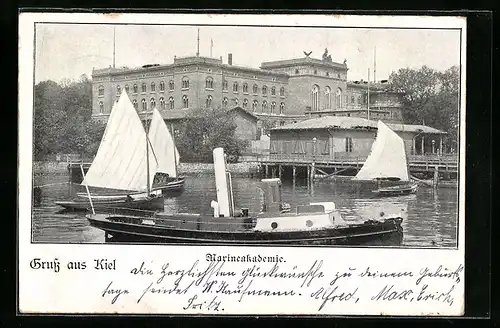 Marineakademie.
Gruß aus Kiel
Die herzlichsten Glückwünsche zu deinem Geburts
tage sendet W. Kaufmann. Alfred, Max, Erich,
Fritz.